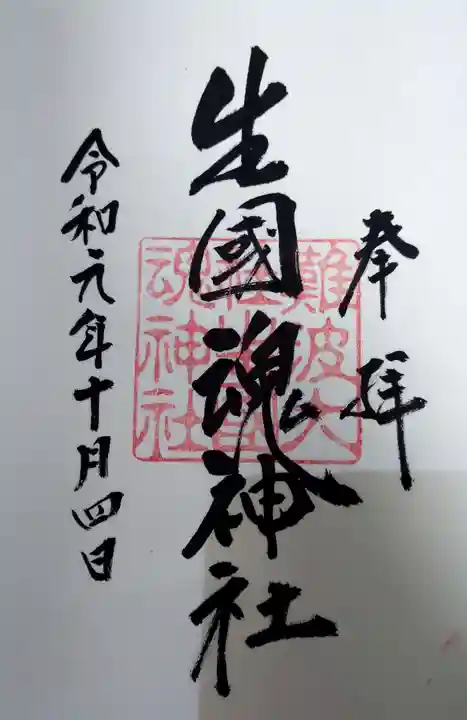 奉拝
生國魂神社
難波大
社生國
魂神社
令和元年十月四日